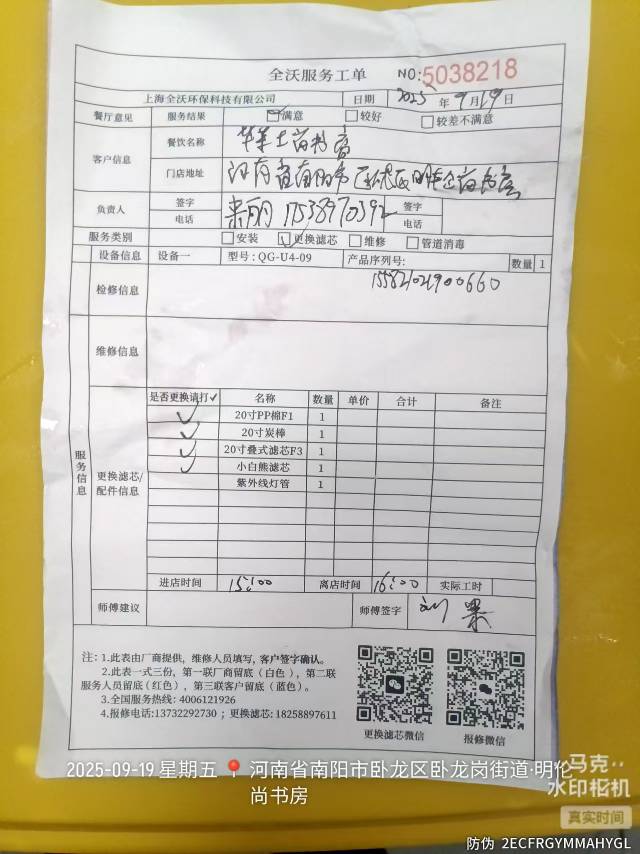 全沃服务工单 NO:5038218
上海全沃环保科技有限公司 日期 2025年9月19日
餐厅意见 服务结果 满意 较好 较差不满意
客户信息 餐饮名称
门店地址 河南省南阳市
负责人 签字 签字
电话 电话
服务类别 安装 更换滤芯 维修 管道消毒
设备信息 设备一 型号:QG-U4-09 产品序列号: 数量 1
检修信息
维修信息
服务信息
更换滤芯/配件信息
是否更换请打✓ 名称 数量 单价 合计 备注
✓ 20寸PP棉F1 1
✓ 20寸炭棒 1
✓ 20寸叠式滤芯F3 1
✓ 小白熊滤芯 1
紫外线灯管 1
进店时间 15:00 离店时间 16:00 实际工时
师傅建议 师傅签字
注:1.此表由厂商提供,维修人员填写,客户签字确认。
2.此表一式三份,第一联厂商留底(白色),第二联
服务人员留底(红色),第三联客户留底(蓝色)。
3.全国服务热线:4006121926
4.报修电话:13732292730;更换滤芯:18258897611
更换滤芯微信 报修微信
2025-09-19 星期五 河南省南阳市卧龙区卧龙岗街道·明伦
尚书房
马克
水印相机
真实时间
防伪 2ECFRGYMMAHYGL